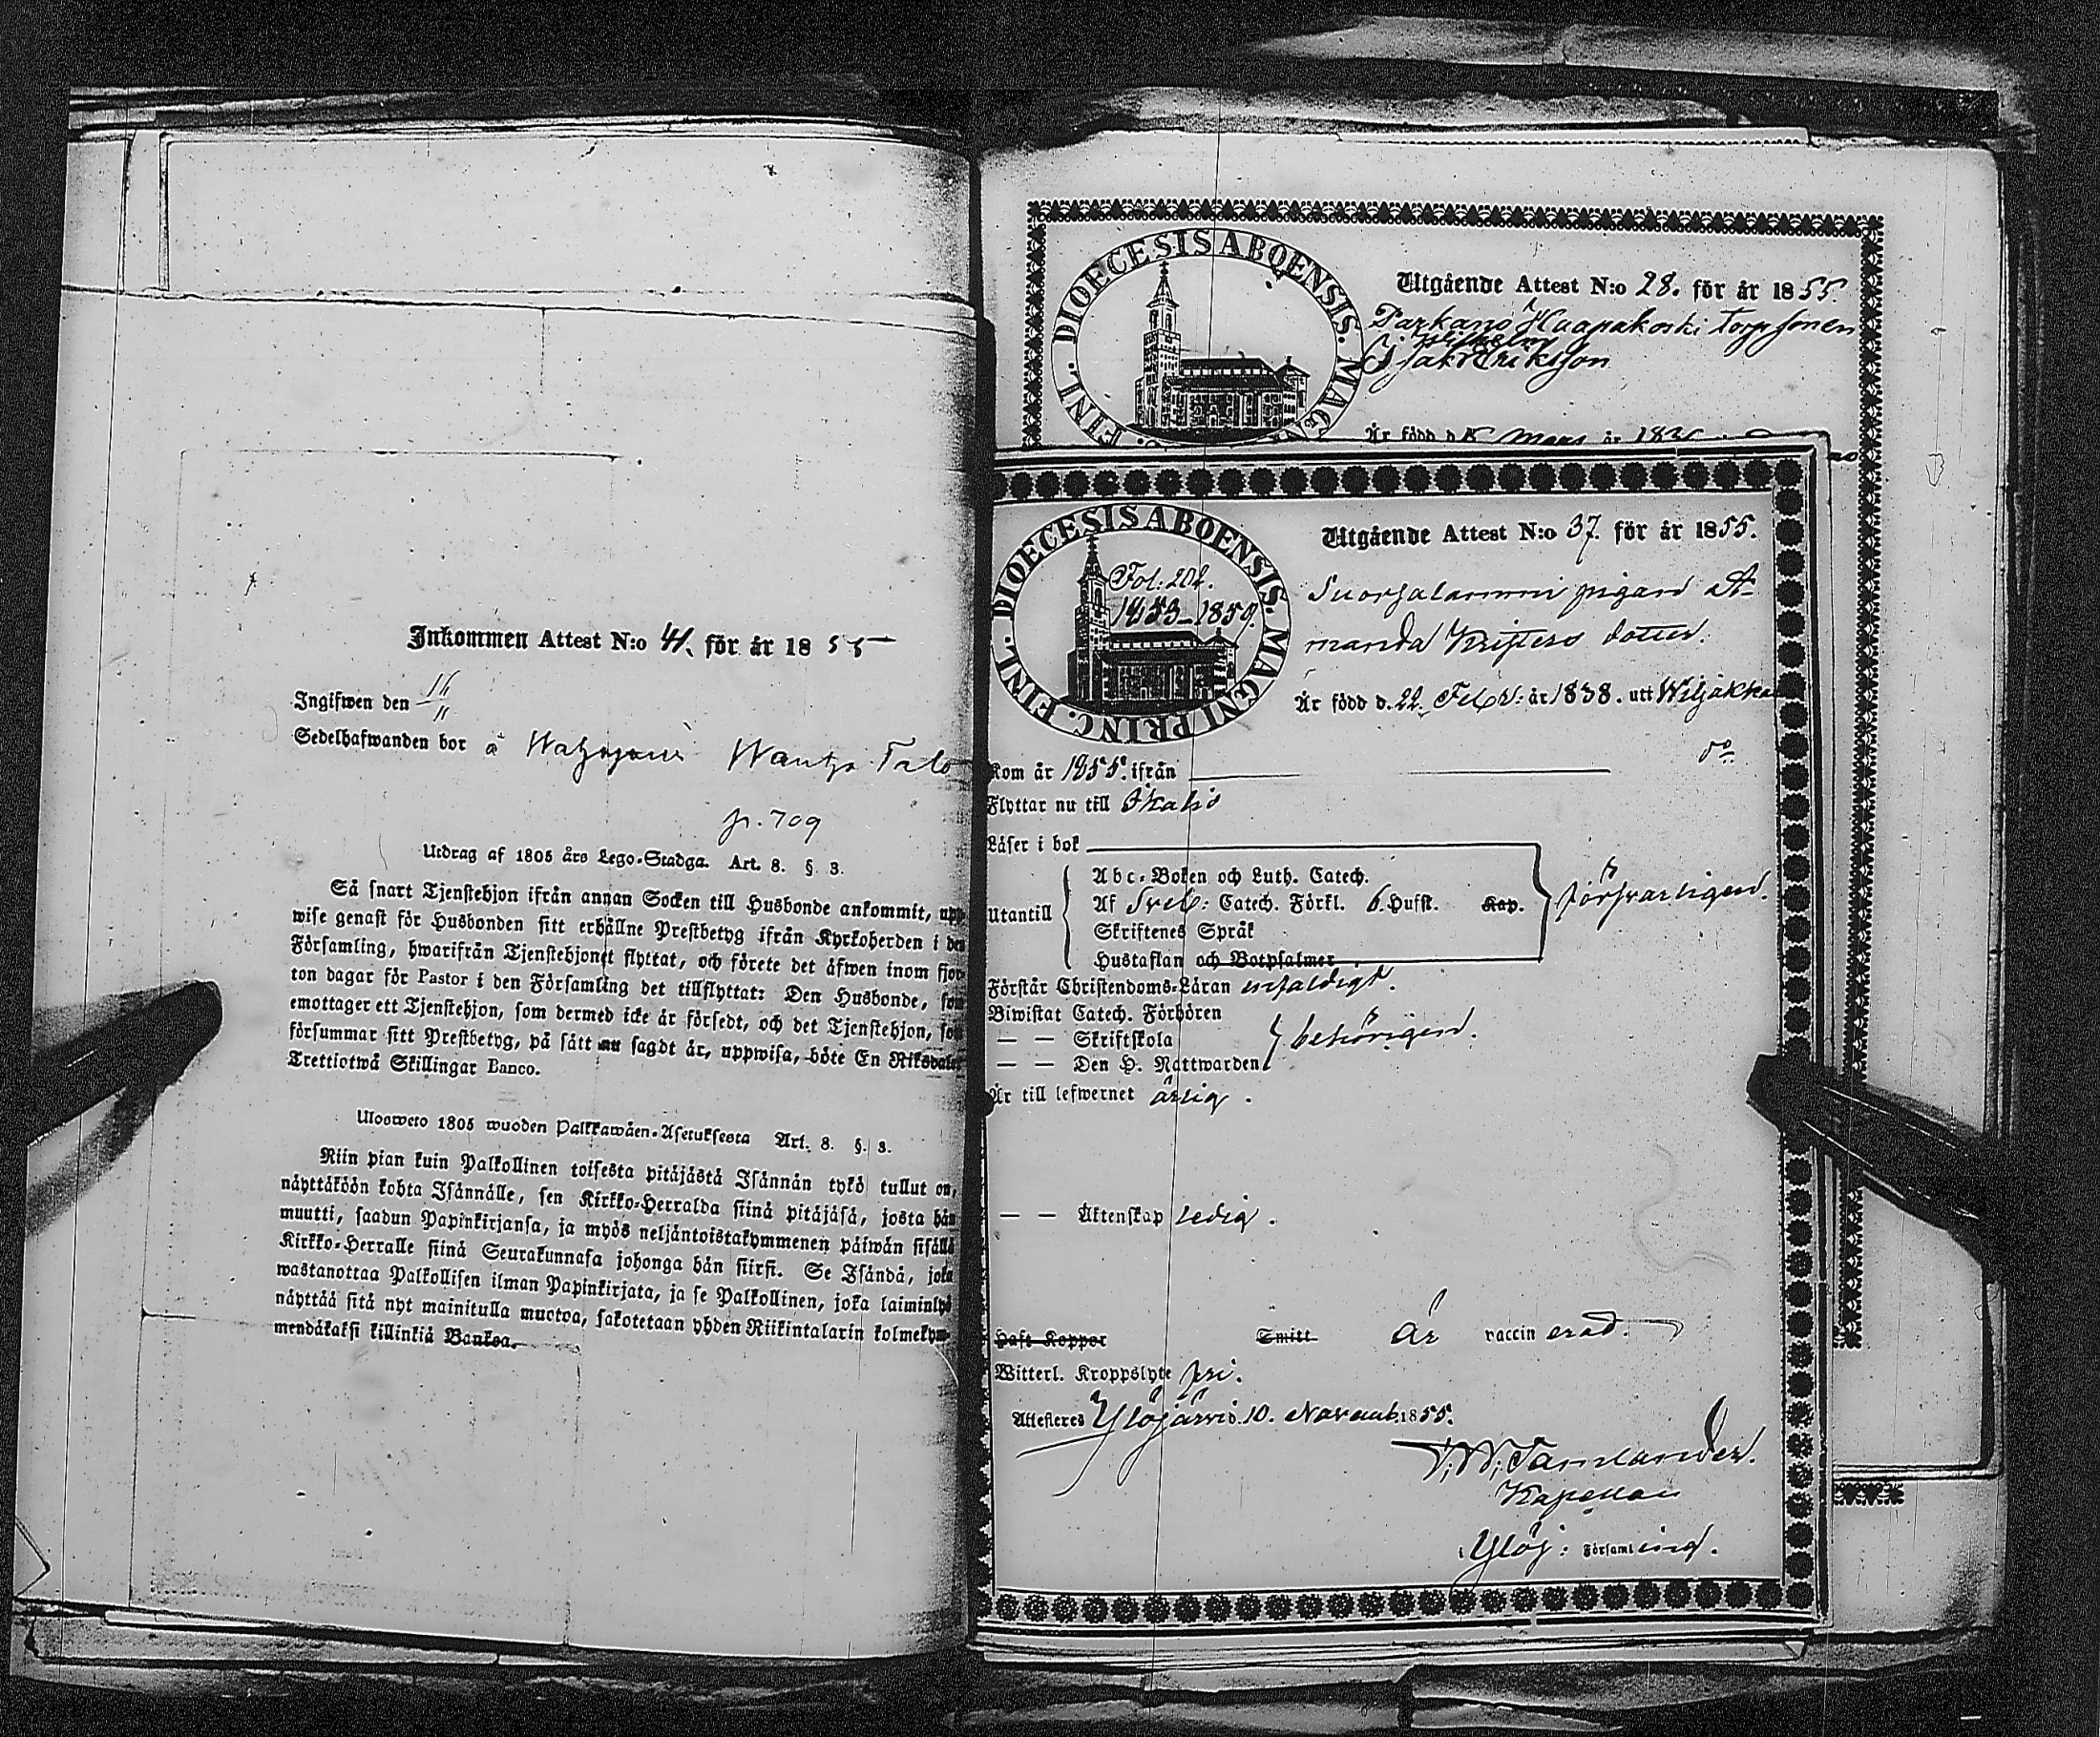 Inkommen Attest N:o 41. för år 1855
Ingifwen den 16/11
Sedelhafwanden bor å Wahojärvi Wanha Talo
p. 709
Utdrag af 1805 års Lego-Stadga. Art. 8. § 3.
Så snart Tjenstehjon ifrån annan Socken till Husbonde ankommit, upp
wise genast för Husbonden sitt erhållne Prestbetyg ifrån Kyrkoherden i den
Församling, hwarifrån Tjenstehjonet flyttat, och förete det äfwen inom fjor-
ton dagar för Pastor i den Församling det tillflyttat: Den Husbonde, som
emottager ett Tjenstehjon, som dermed icke är försedt, och det Tjenstehjon, som
försummar sitt Prestbetyg, på sätt nu sagdt är, uppwisa, böte En Riksdaler
Trettiotwå Skillingar Banco.
Ulosweto 1805 wuoden Palkkawäen-Asetuksesta Art. 8. §. 3.
Niin pian kuin Palkollinen toisesta pitäjästä Isännän tykö tullut on,
näyttäköön kohta Isännälle, sen Kirkko-Herralda siinä pitäjäsä, josta hän
muutti, saadun Papinkirjansa, ja myös neljäntoistakymmenen päiwän sisällä
Kirkko-Herralle siinä Seurakunnasa johonga hän siirsi. Se Isändä, joka
wastanottaa Palkollisen ilman Papinkirjata, ja se Palkollinen, joka laiminlyö
näyttää sitä nyt mainitulla muotoa, sakotetaan yhden Riikintalarin kolmekym-
mendäkaksi killinkiä Bankoa.
DIOECESIS ABOENSIS. MAGNI PRINC. FINL.
Utgående Attest N:o 28. för år 1855.
Parkano Haapakoski Torp sonen
Wilhelm
Isak Eriksson
Är född d. 8 Mars år 183
DIOECESIS ABOENSIS. MAGNI PRINC. FINL.
Fol: 202.
1853-1859.
Utgående Attest N:o 37. för år 1855.
Suorsalammi pigan A-
manda Kristers dotter.
Är född d. 22. Febr: år 1838. uti Wiljakka
la
Kom år 1855. ifrån
Flyttar nu till Ikalis
Läser i bok
Utantill
Abc-Boken och Luth. Catech.
Af Sveb: Catech. Förkl. 6. Hufst. Kap.
Skriftenes Språk
Hustaflan och Botpsalmer
försvarligen.
Förstår Christendoms-Läran enfaldigt.
Biwistat Catech. Förhören
— — Skriftskola
— — Den H. Nattwarden
behörigen.
Är till lefwernet ärlig.
— — Äktenskap ledig.
Haft Koppor Smitt Är vaccinerad.
Witterl. Kroppslyte fri.
Attesteres Ylöjärvi d. 10. Novemb. 1855.
Kapellan
i Ylöj: Församling.